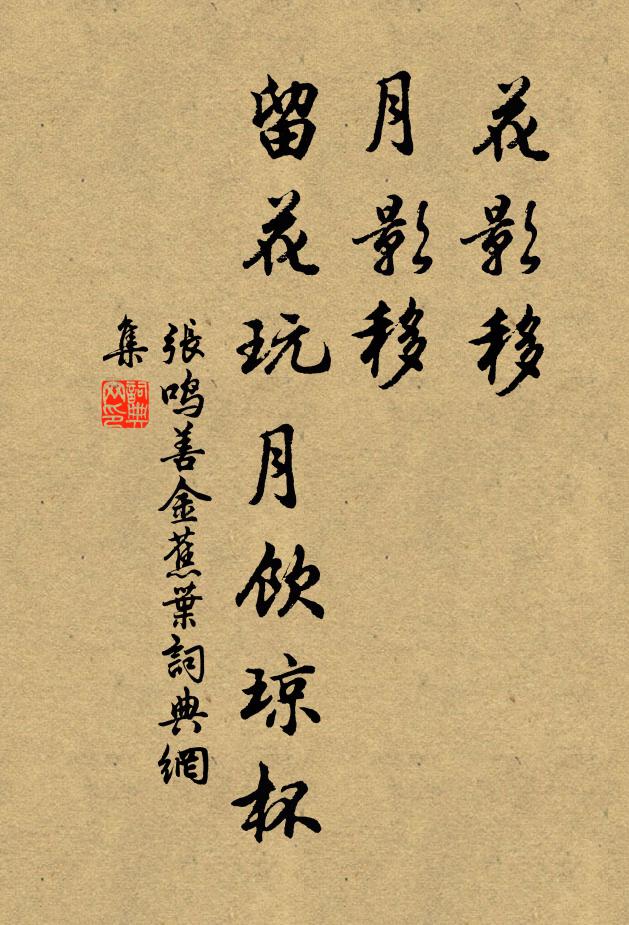 花影移
月影移
留花玩月飲琼杯
張鳴善金蕉葉詞典網
集
詞典
网印